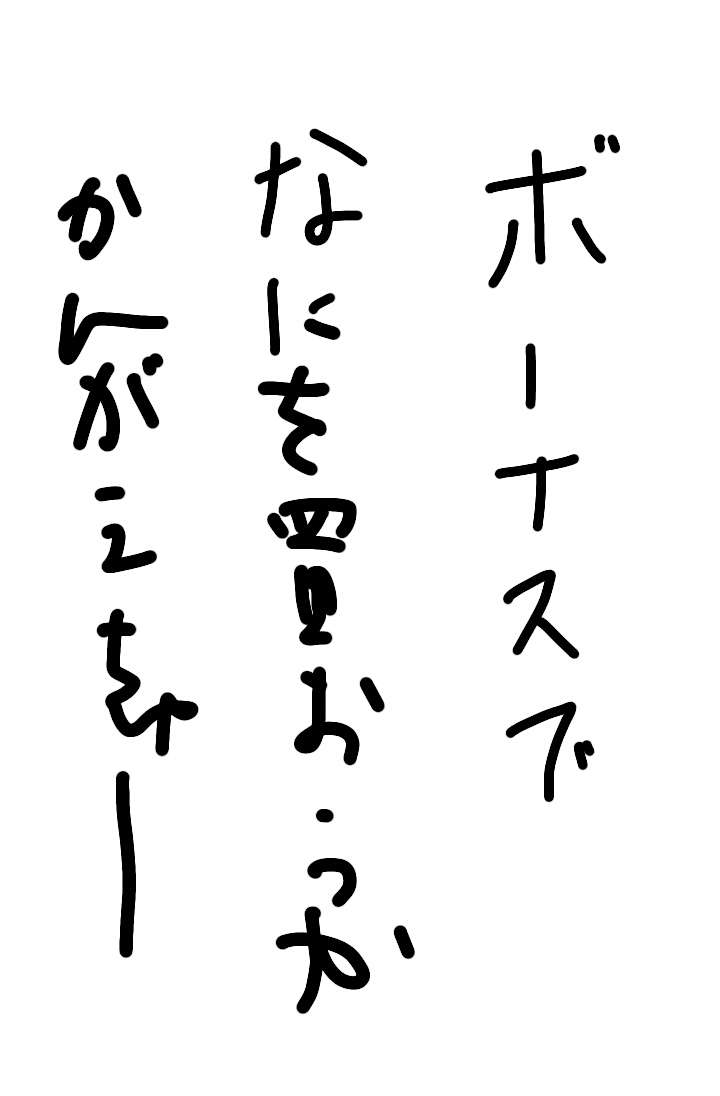 ボーナスで
なにを買おうか
かんがえちゃー